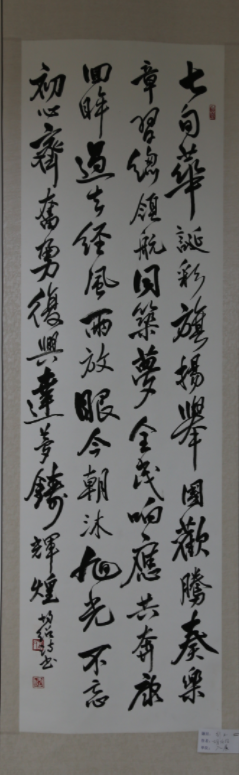 七旬華誕彩旗揚舉國歡騰奏樂
章習總領航同築夢全民响應共奔康
回眸過去經風雨放眼今朝沐旭光不忘
初心齊奮勇復興達夢鑄輝煌